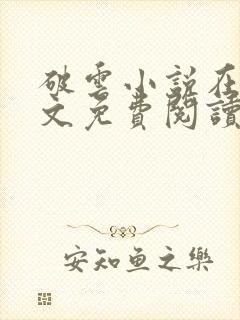 破雲小説在
文免費閱讀
安知鱼之樂